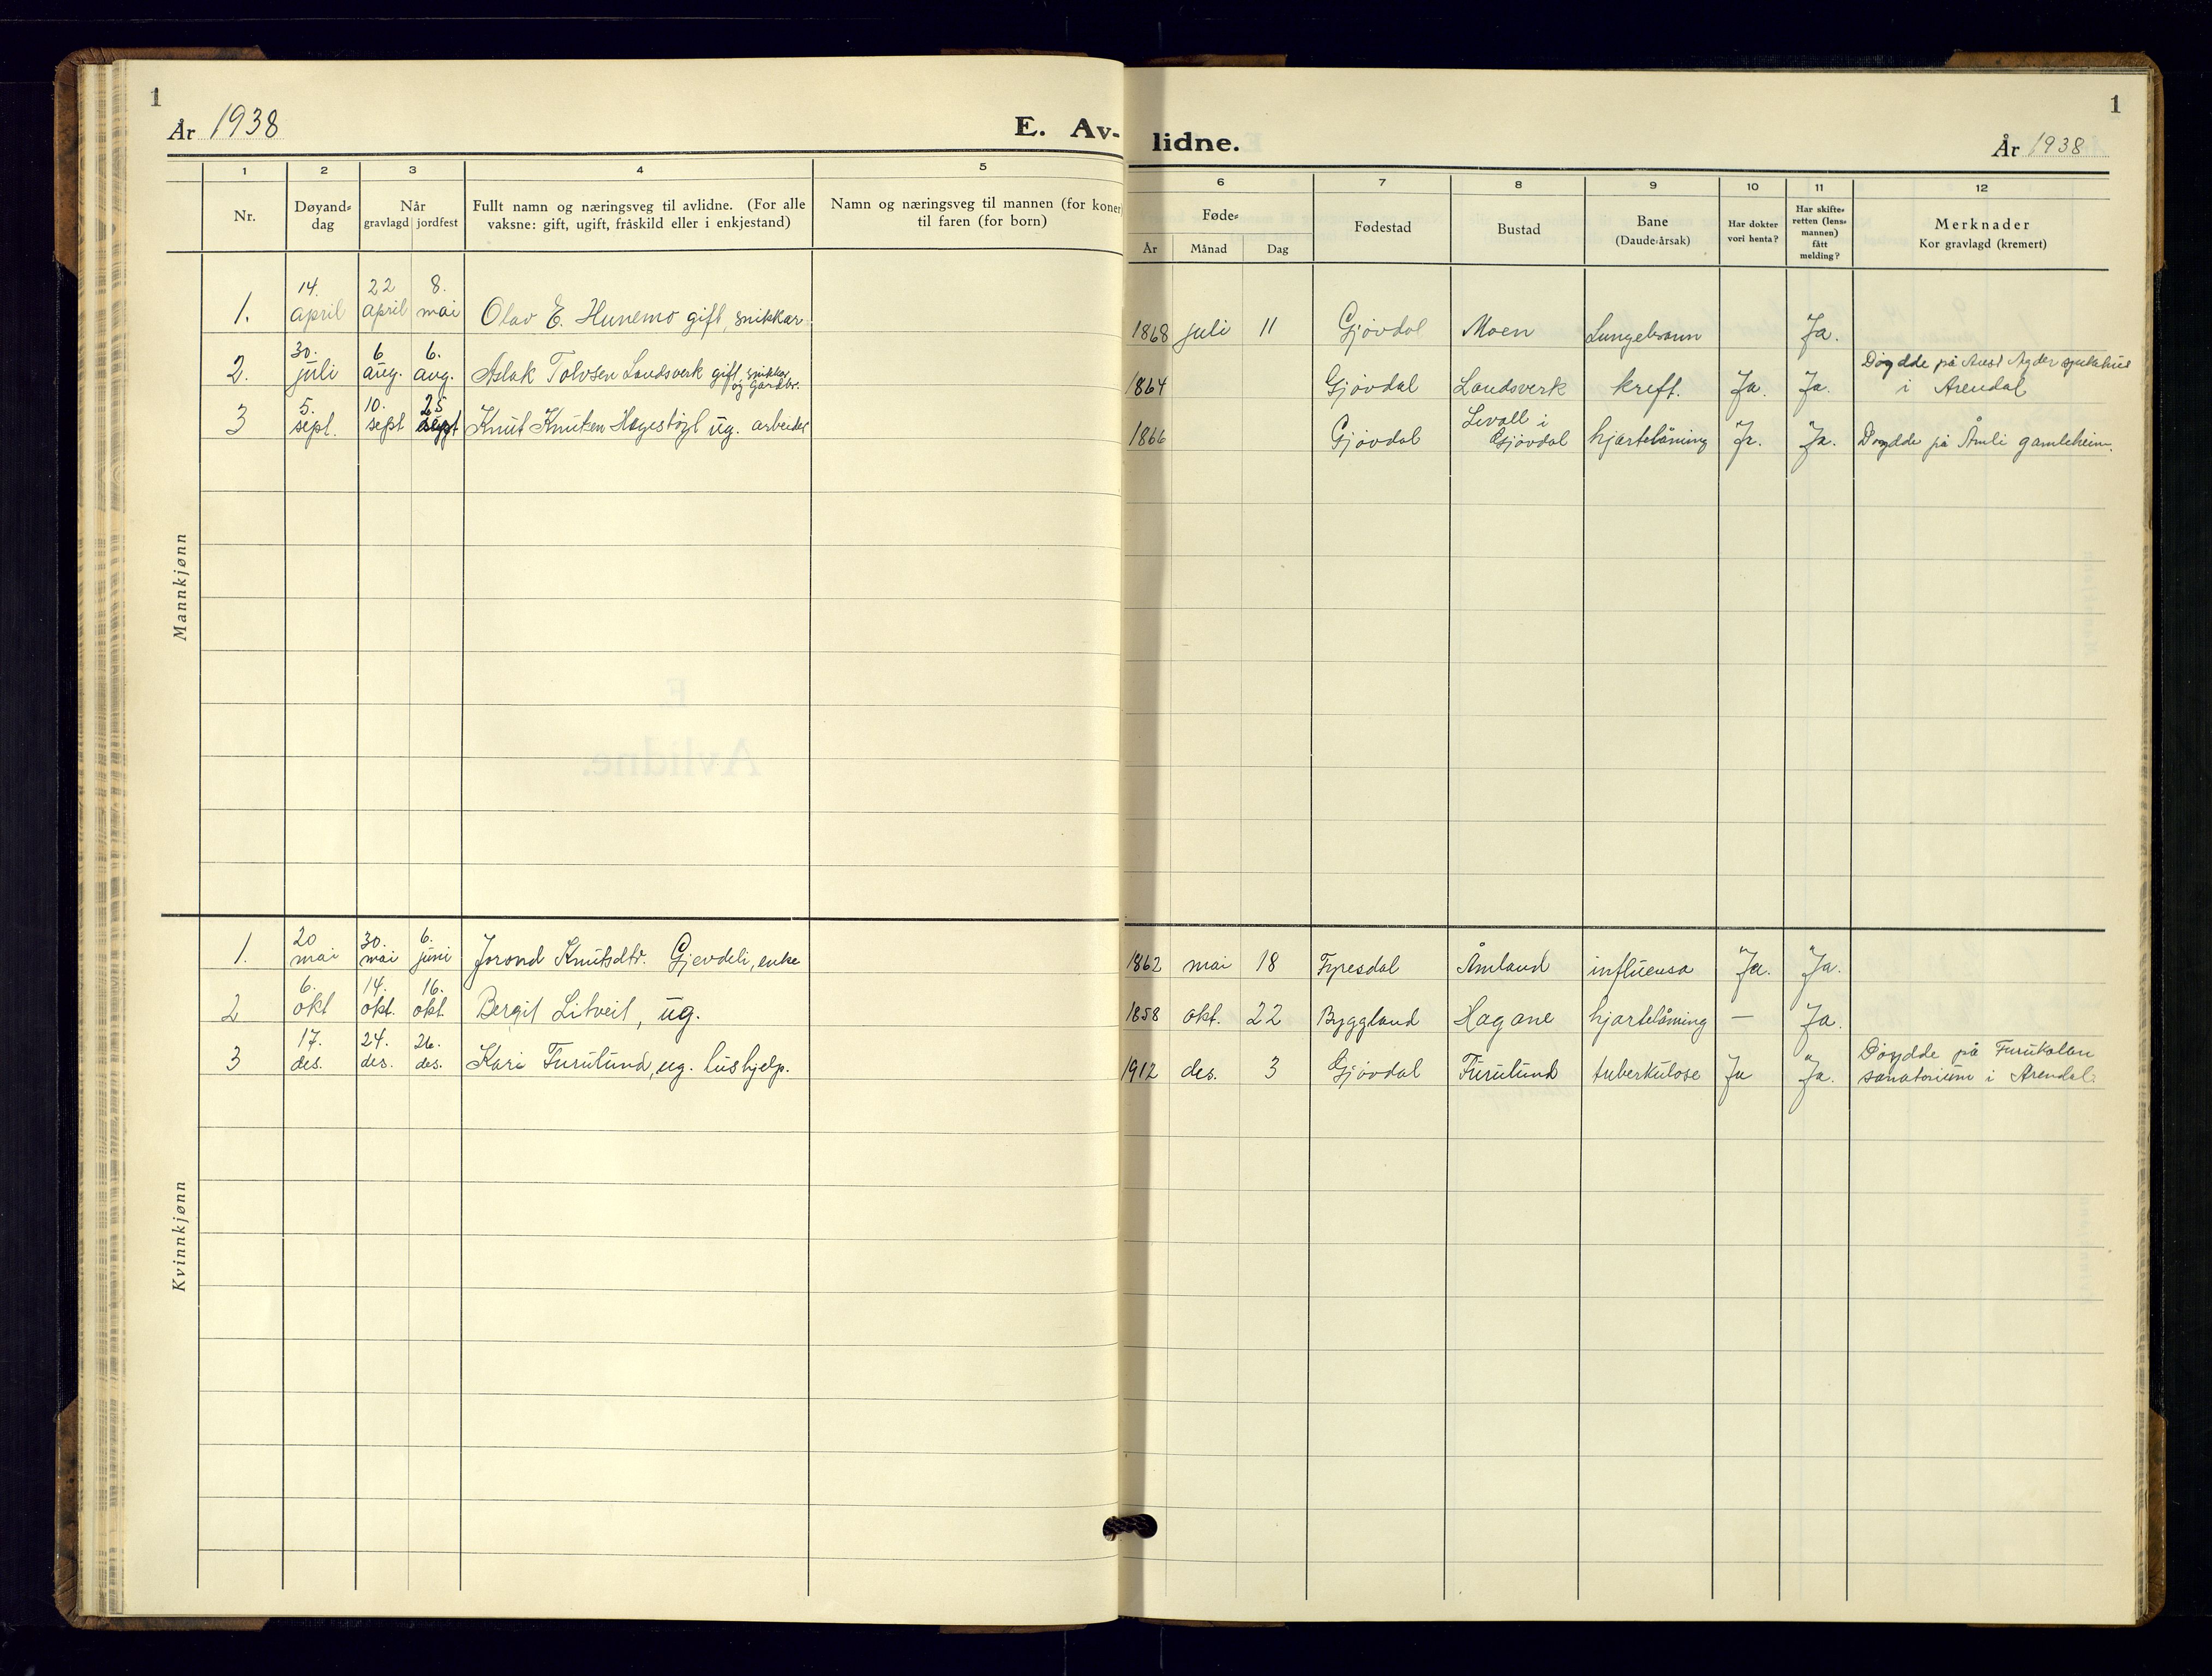 1
År 1938
E. Av-
1 2 3 4 5
Nr.
Døyand-
dag
Når
gravlagd jordfest
Fullt namn og næringsveg til avlidne. (For alle
vaksne: gift, ugift, fråskild eller i enkjestand)
Namn og næringsveg til mannen (for koner)
til faren (for born)
Mannkjønn
14. 22 8.
1. april april mai Olav E. Hunemo gift, snikkar
30. 6 6.
2. juli aug. aug. Aslak Tolvsen Landsverk gift, snikkar
og gardbr.
5. 10. 25
3 sept. sept sept Knut Knutsen Hagestøyl ug. arbeider
Kvinnkjønn
20 30. 6.
1. mai mai juni Jorond Knutsdtr. Gjevdeli, enke
6. 14. 16.
2 okt okt. okt. Bergit Litveit, ug.
17. 24. 26.
3 des. des. des. Kari Furulund, ug. hushjelp.
1
lidne.
År 1938
6 7 8 9 10 11 12
Føde-
År Månad Dag
Fødestad
Bustad
Bane
(Daude-årsak)
Har dokter
vori henta?
Har skifte-
retten (lens-
mannen)
fått
melding?
Merknader
Kor gravlagd (kremert)
1868 juli 11 Gjøvdal Moen Lungebrann Ja.
Døydde på Aust Agder sjukehus
1864 Gjøvdal Landsverk kreft. Ja. Ja. i Arendal
Levoll i
1866 Gjøvdal Gjøvdal hjartelåming Ja. Ja. Døydde på Åmli gamleheim.
1862 mai 18 Fyresdal Åmland influensa Ja. Ja.
1858 okt. 22 Byggland Hagane hjartelåming — Ja.
Døydde på Furukollen
1912 des. 3 Gjøvdal Furulund tuberkulose Ja Ja. sanatorium i Arendal.